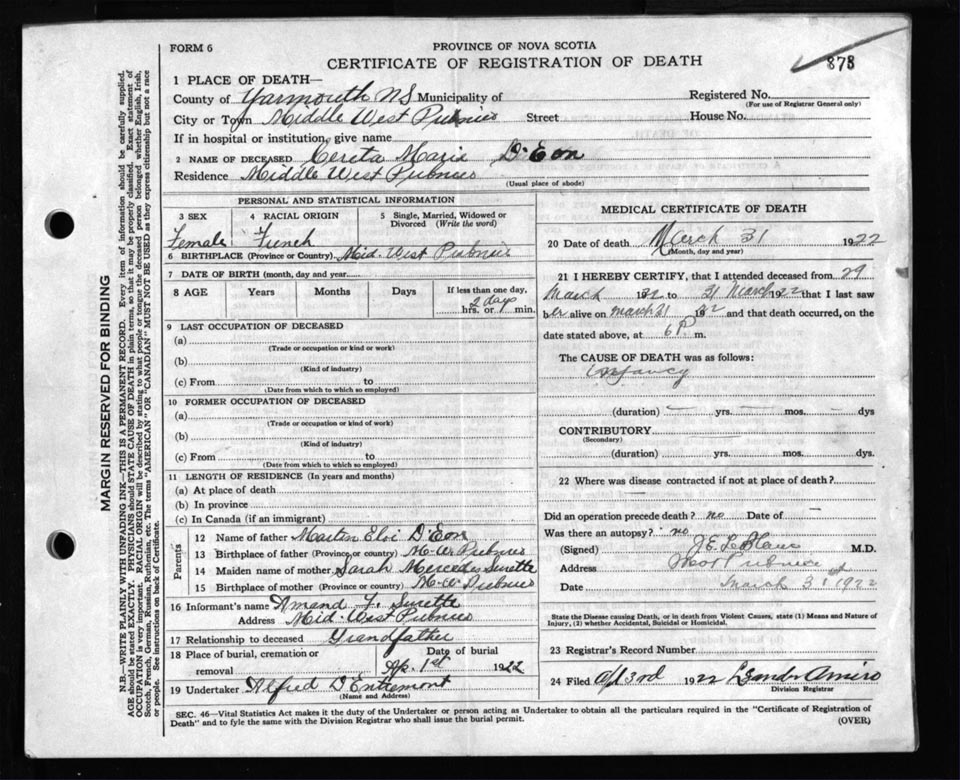 FORM 6
PROVINCE OF NOVA SCOTIA
CERTIFICATE OF REGISTRATION OF DEATH
878
1 PLACE OF DEATH—
County of Yarmouth NS Municipality of
Registered No.
(For use of Registrar General only)
City or Town Middle West Pubnico Street House No.
If in hospital or institution, give name
2 NAME OF DECEASED Maria D'Eon
Residence Middle West Pubnico
(Usual place of abode)
PERSONAL AND STATISTICAL INFORMATION
3 SEX
4 RACIAL ORIGIN
5 Single, Married, Widowed or Divorced (Write the word)
Female French
6 BIRTHPLACE (Province or Country) Mid. West Pubnico
7 DATE OF BIRTH (month, day and year)
8 AGE Years Months Days If less than one day,
2 days
hrs. or min.
9 LAST OCCUPATION OF DECEASED
(a)
(Trade or occupation or kind or work)
(b)
(Kind of industry)
(c) From to
(Date from which to which so employed)
10 FORMER OCCUPATION OF DECEASED
(a)
(Trade or occupation or kind of work)
(b)
(Kind of industry)
(c) From to
(Date from which to which so employed)
11 LENGTH OF RESIDENCE (In years and months)
(a) At place of death
(b) In province
(c) In Canada (if an immigrant)
Parents
12 Name of father Martin Eloi D'Eon
13 Birthplace of father (Province or country) M-W. Pubnico
14 Maiden name of mother Sarah Mercedes Surette
15 Birthplace of mother (Province or country) M-W. Pubnico
16 Informant's name Amand Surette
Address Mid-West Pubnico
17 Relationship to deceased Grandfather
18 Place of burial, cremation or removal
Date of burial
Ap. 1st 1922
19 Undertaker Alfred D'Entremont
(Name and Address)
MEDICAL CERTIFICATE OF DEATH
20 Date of death March 31 1922
(Month, day and year)
21 I HEREBY CERTIFY, that I attended deceased from 29
March 1922 to 31 March 1922 that I last saw
her alive on March 31 1922 and that death occurred, on the
date stated above, at 6 P. m.
The CAUSE OF DEATH was as follows:
Infancy
(duration) — yrs. — mos. — dys
CONTRIBUTORY
(Secondary)
(duration) yrs. mos. dys.
22 Where was disease contracted if not at place of death?
Did an operation precede death? no Date of —
Was there an autopsy? no
(Signed) J E LeBlanc M.D.
Address West Pubnico
Date March 31 1922
State the Disease causing Death, or in death from Violent Causes, state (1) Means and Nature of
Injury, (2) whether Accidental, Suicidal or Homicidal.
23 Registrar's Record Number
24 Filed Apl 3rd 1922 Leander Amiro
Division Registrar
SEC. 46—Vital Statistics Act makes it the duty of the Undertaker or person acting as Undertaker to obtain all the particulars required in the "Certificate of Registration of
Death" and to fyle the same with the Division Registrar who shall issue the burial permit.
(OVER)
MARGIN RESERVED FOR BINDING
N.B.—WRITE PLAINLY WITH UNFADING INK—THIS IS A PERMANENT RECORD. Every item of information should be carefully supplied.
AGE should be stated EXACTLY. PHYSICIANS should STATE CAUSE OF DEATH in plain terms, so that it may be properly classified. Exact statement of
OCCUPATION is very important. RACIAL ORIGIN will be described by stating to what people or tongue the deceased person belonged whether English, Irish,
Scotch, French, German, Russian, Ruthenian, etc. The terms "AMERICAN" OR "CANADIAN" MUST NOT BE USED as they express citizenship but not a race
or people. See instructions on back of Certificate.